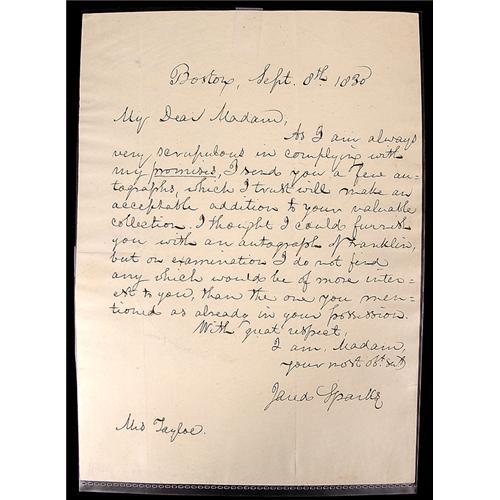 Boston, Sept. 8th 1830
My Dear Madam,
As I am always
very scrupulous in complying with
my promises, I send you a few au-
tographs, which I trust will make an
acceptable addition to your valuable
collection. I thought I could furnish
you with an autograph of Franklin,
but on examination I do not find
any which would be of more inter-
est to you, than the one you men-
tioned as already in your possession.
With great respect,
I am, Madam,
your most obt. svt
Jared Sparks
Mrs Tayloe.